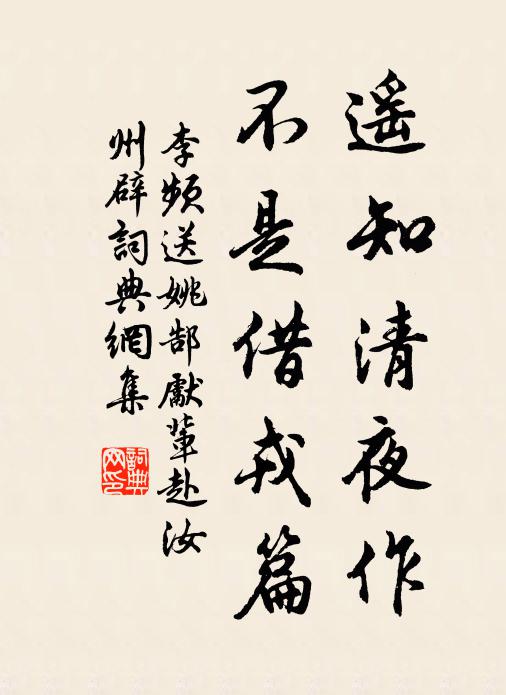 遥知清夜作
不是借戎篇
李频送姚郜獻輩赴汝
州辟詞典網集
詞典
网印